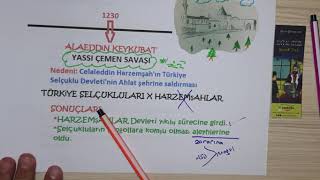 1230
ALAEDDİN KEYKUBAT
YASSI ÇEMEN SAVAŞI
Nedeni: Celaleddin Harzemşah'ın Türkiye
Selçuklu Devleti'nin Ahlat şehrine saldırması
TÜRKİYE SELÇUKLULARI X HARZEMşAHLAR
SONUÇLARI
*HARZEMşAHLAR Devleti yıkılış sürecine girdi.
*Selçukluların Moğollara komşu olması aleyhlerine
oldu.